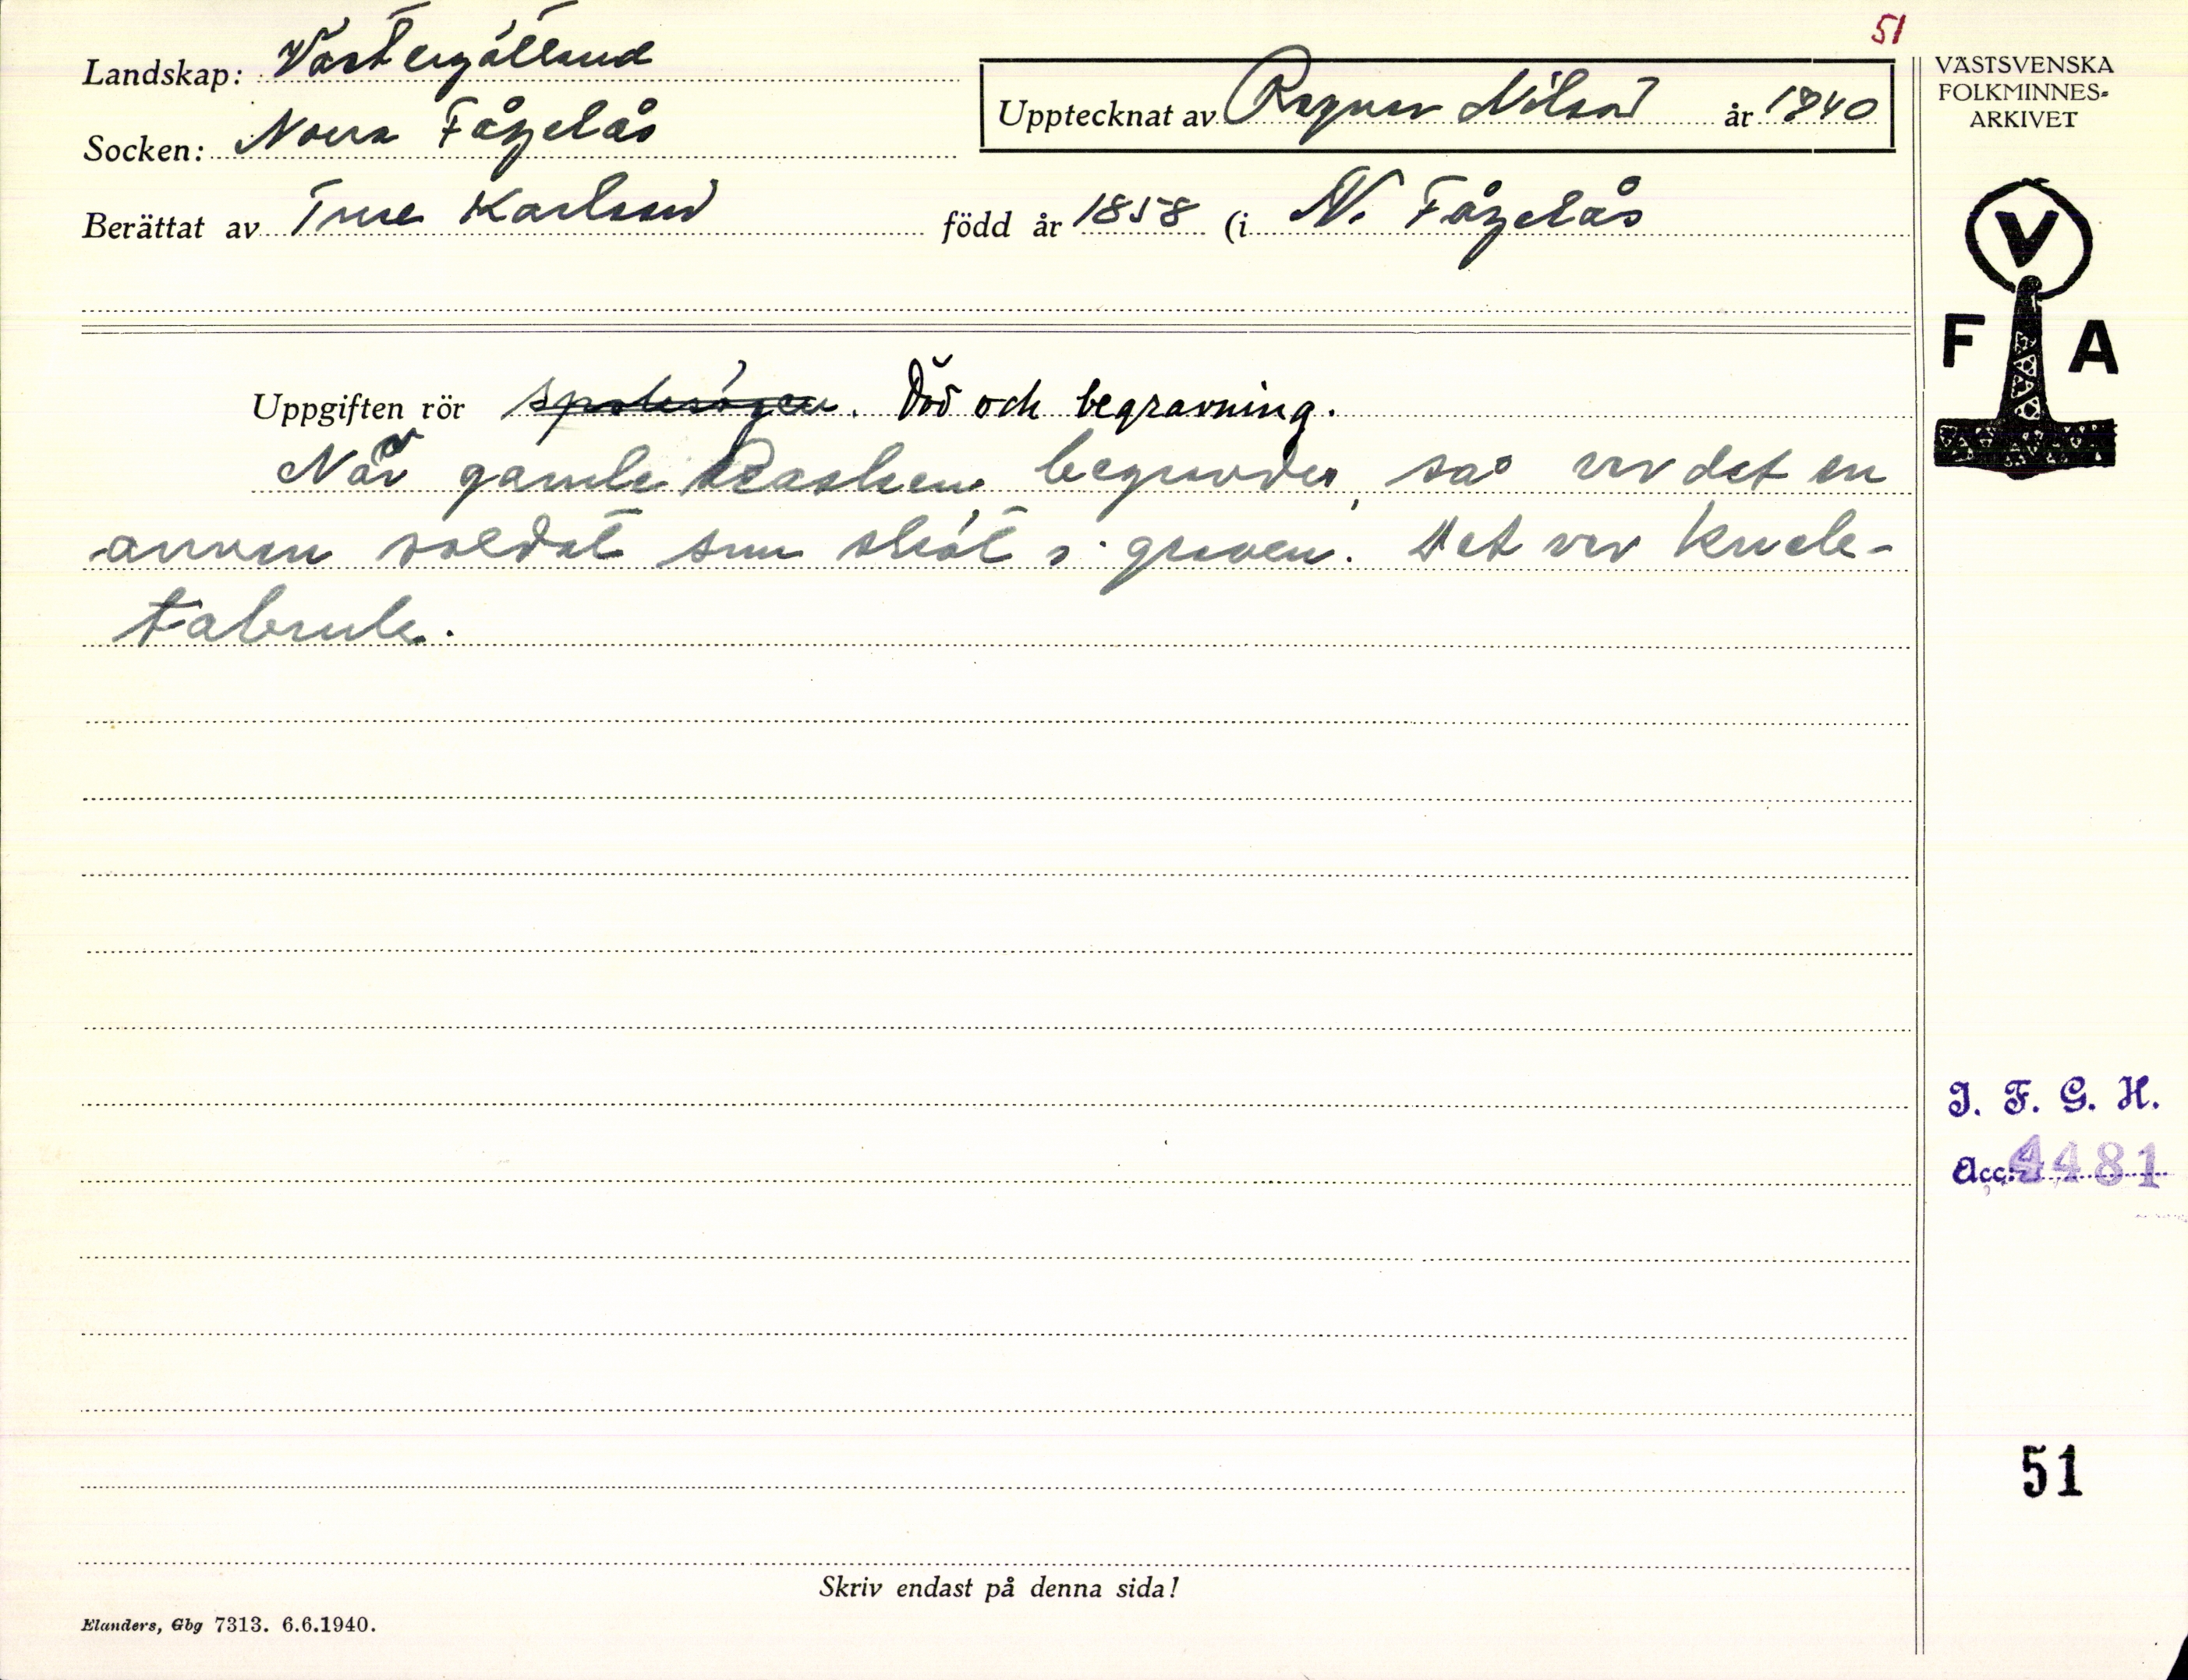 51
Landskap: Västergötland
Socken: Norra Fågelås
Upptecknat av Ragnar Nilson år 1940
Berättat av Ture Karlson född år 1858 (i N. Fågelås
VÄSTSVENSKA
FOLKMINNES-
ARKIVET
V
F A
Uppgiften rör spöksägen. Död och begravning.
När gamle Rasken begravdes, så var det en
annan soldat som sköt i graven. Det var
I. F. G. H.
Acc: 4481
51
Skriv endast på denna sida!
Elanders, Gbg 7313. 6.6.1940.